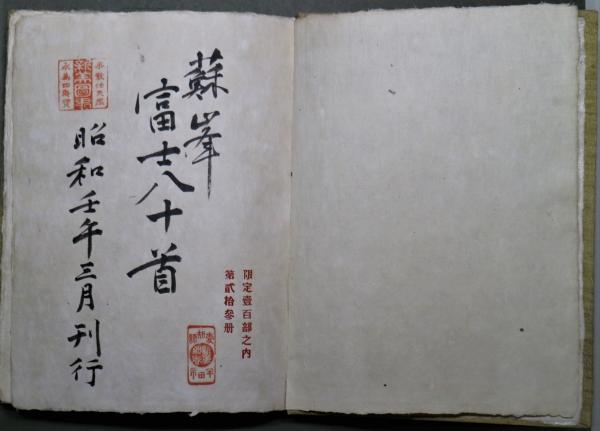 限定壹百部之内
第貳拾參册
蘇峯
富士八十首
昭和壬午三月刊行